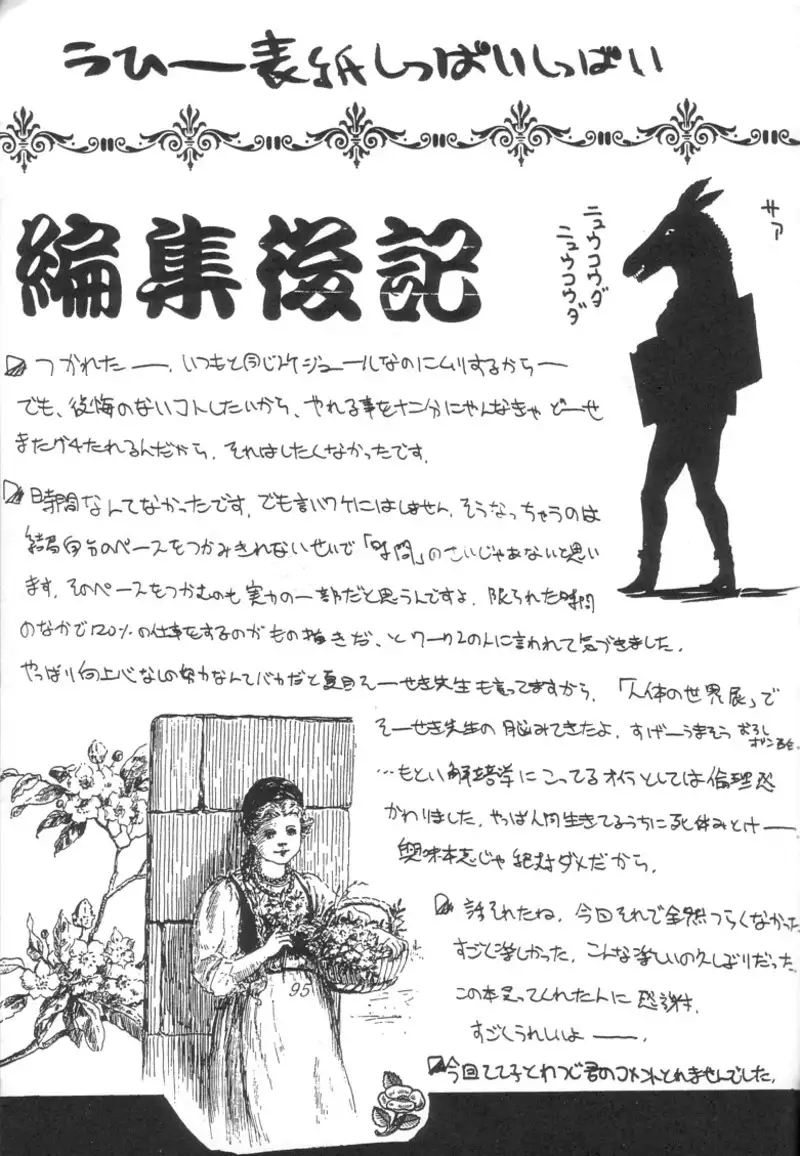 うひー表紙しっぱいしっぱい
サァ
ニュウコウダ
ニュウコウダ
編集後記
つかれたー。いつもと同じスケジュールなのにムリするからー
でも、後悔のないコトしたいから、やれる事を十二分にやんなきゃ どーせ
またグチたれるんだから。それはしたくなかったです。
時間なんてなかったです。でも言いワケにはしません。そうなっちゃうのは
結局自分のペースをつかみきれないせいで「時間」のせいじゃあないと思い
ます。そのペースをつかむのも実力の一部だと思うんですよ。限られた時間
のなかで120%の仕事をするのがもの描きだ、とワーク2の人に言われて気づきました。
やっぱり向上心なしの努力なんてバカだと夏目そーせき先生も言ってますから。「人体の世界展」で
そーせき先生の脳みてきたよ。すげーうまそう おろし
ポン酢
…もとい解剖学にこってるオイラとしては倫理
かわりました。やっぱ人間生きてるうちに
興味本意じゃ絶対ダメだから。
話それたね。今回それで全然つらくなかった
すごく楽しかった。こんな楽しいの久しぶりだった
この本買ってくれた人に感謝。
すごくうれしいよー。
今回てて子とわつじ君のコメントとれませんでした。
95